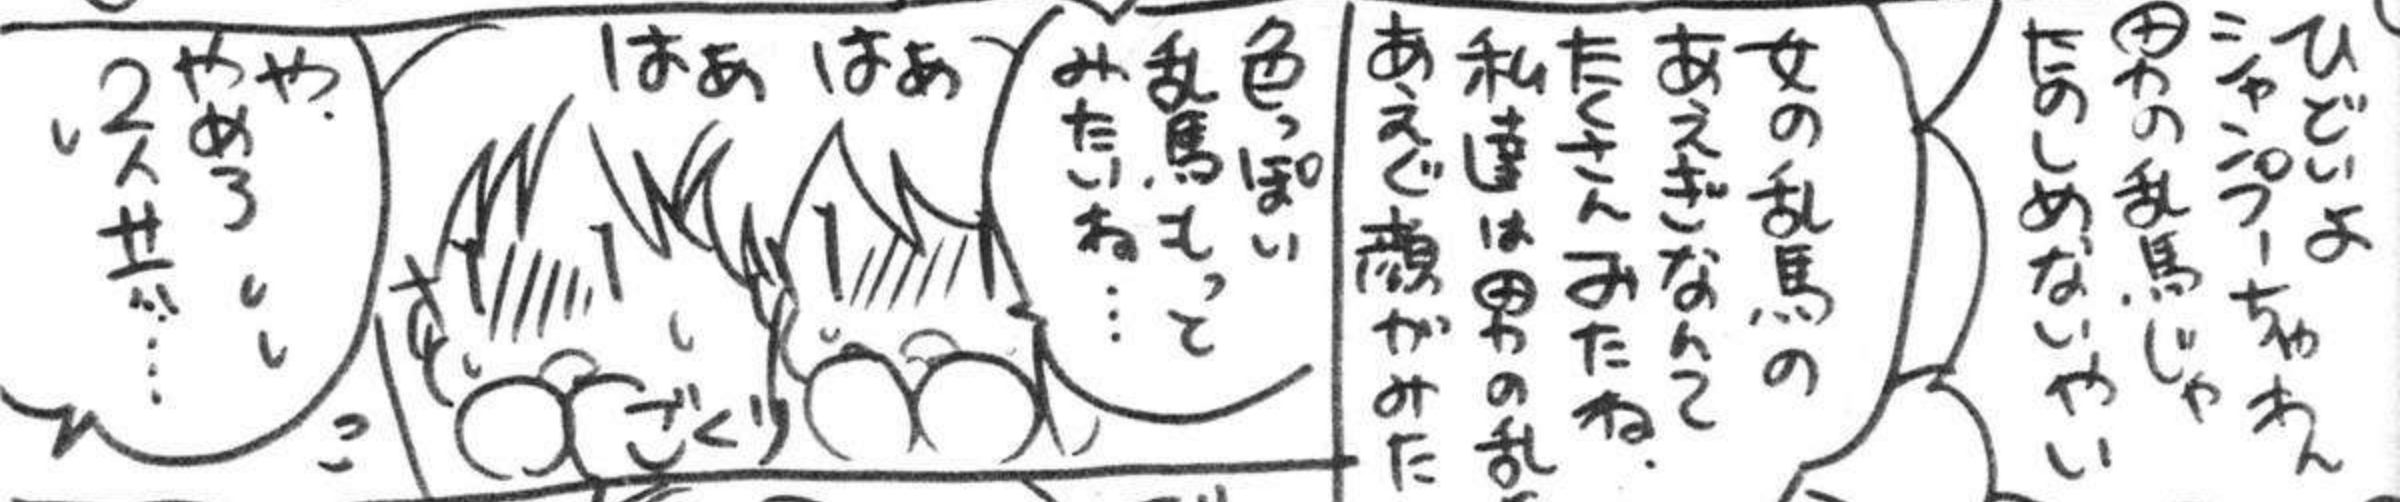 ひどいよ
シャンプーちゃわん
男の乱馬じゃ
たのしめないやい
女の乱馬の
あえぎなんて
たくさんみたね.
私達は男の乱
あえぐ顔がみた
色っぽい
乱馬もっと
みたいね…
はぁ はぁ
ごくり
や.
やめろ
2人共…